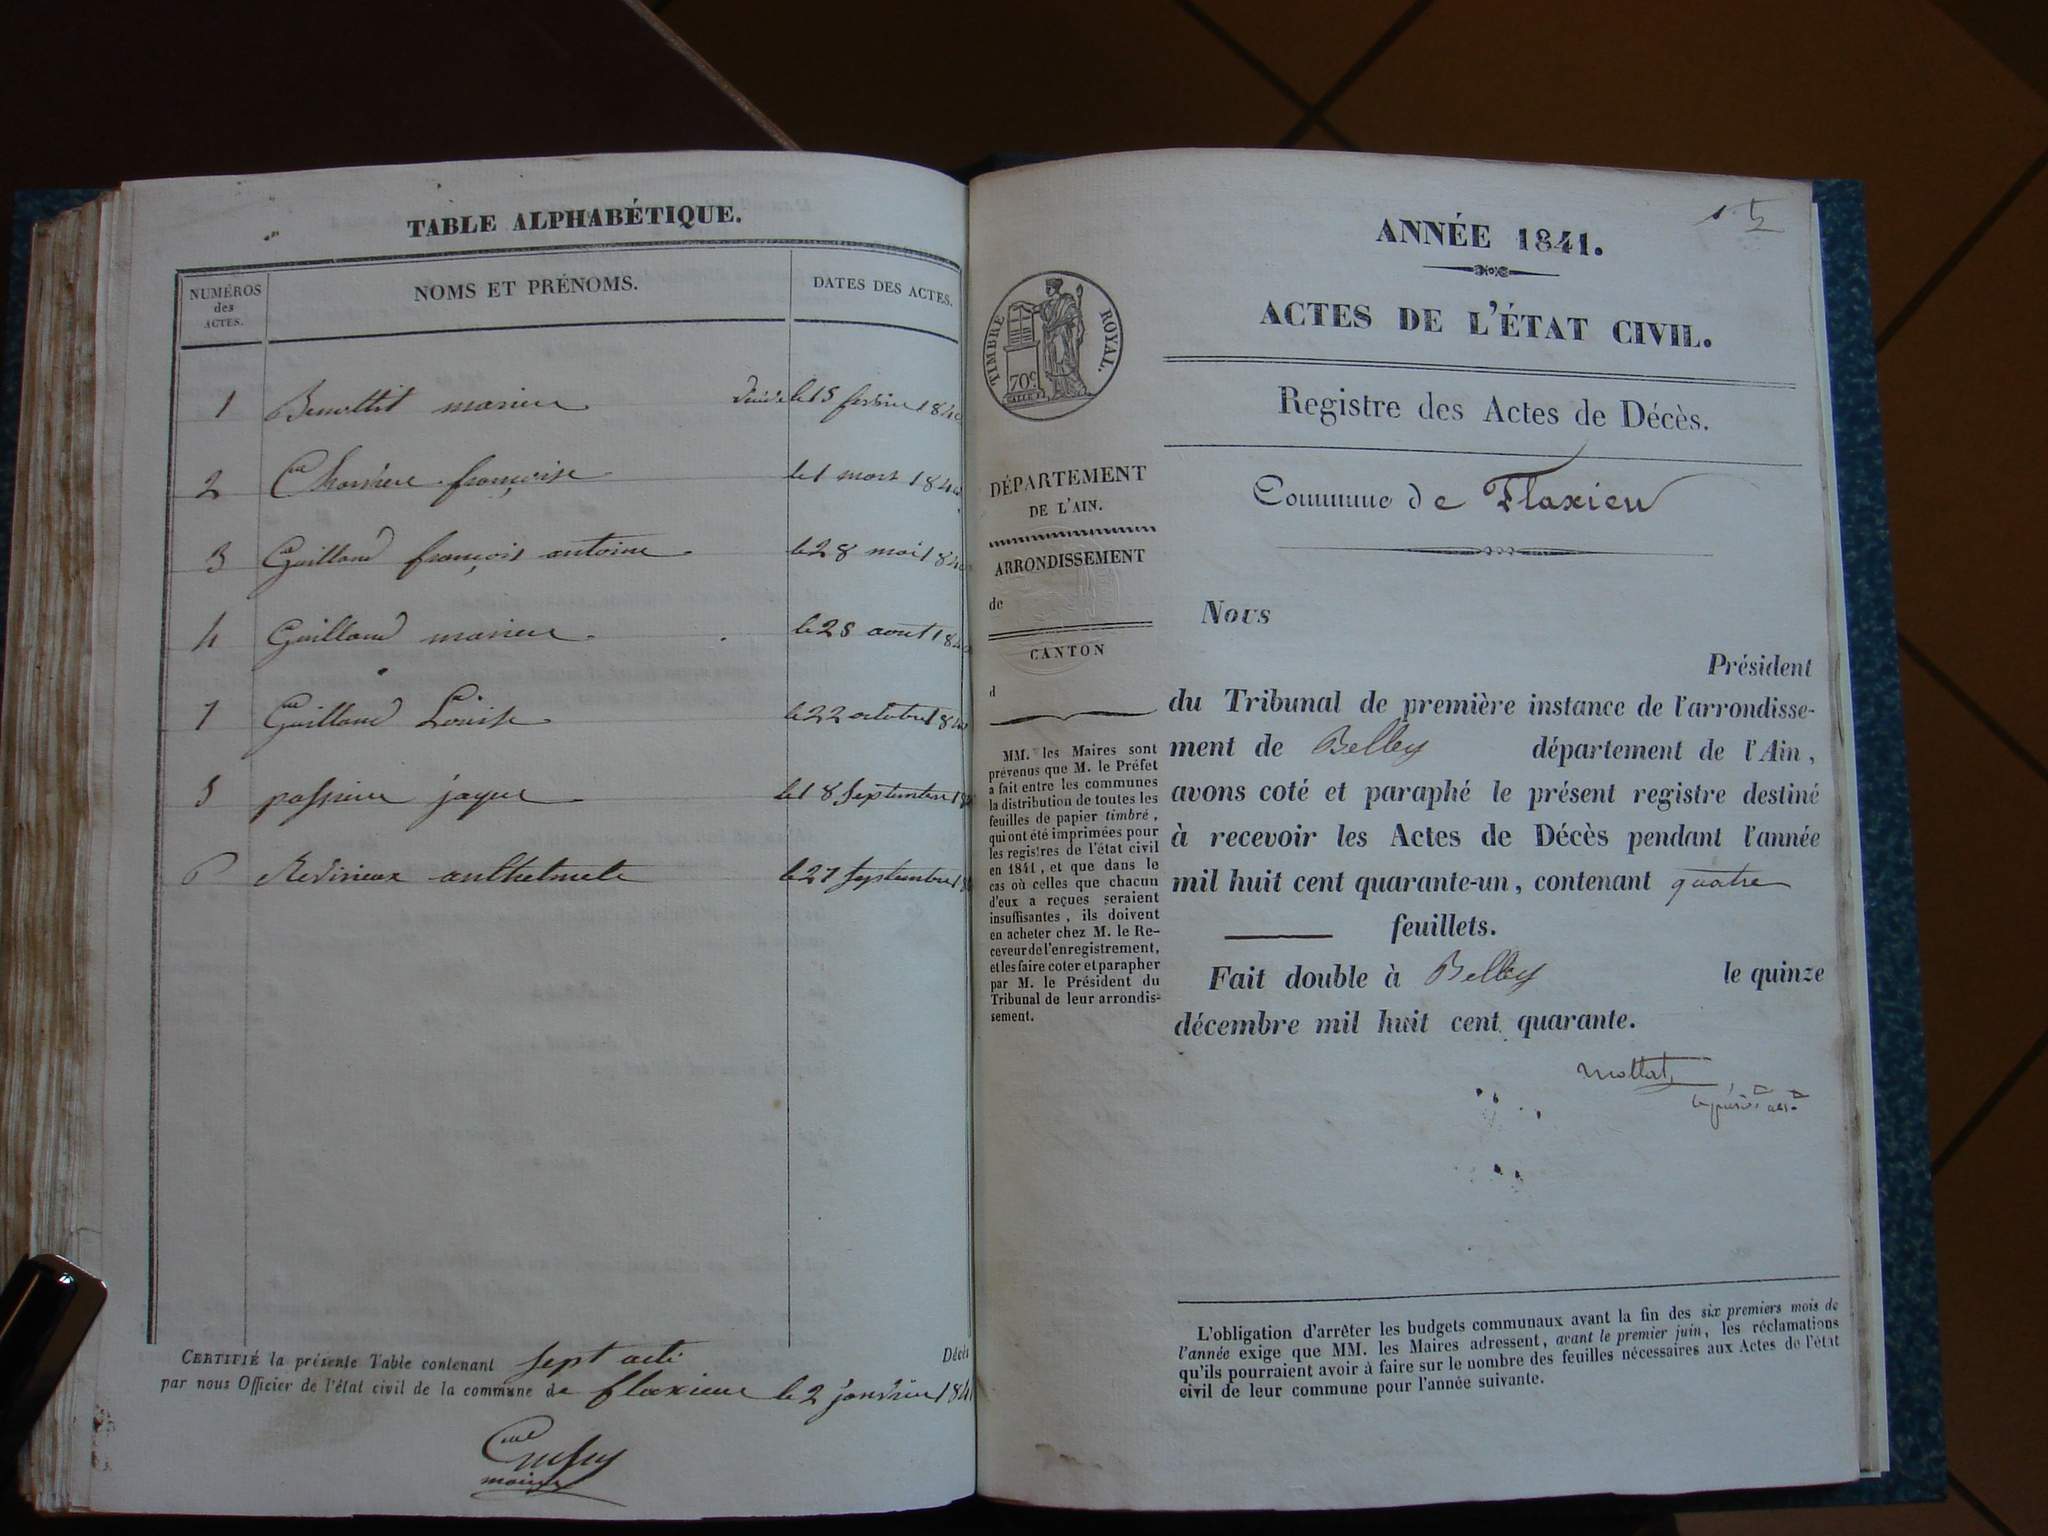 TABLE ALPHABÉTIQUE.
NUMÉROS
des
ACTES.
NOMS ET PRÉNOMS.
DATES DES ACTES.
1 marieu le 15 1840
2 françoise le 1 mars 1840
3 Guilland françois antoine le 28 mai 1840
4 Guilland marieu le 25 aout 1840
7 Guilland Louise le 22 octobre 1840
5 jaque le 18 septembre 18
6 anthelmete le 27 septembre 18
CERTIFIÉ la présente Table contenant sept acte Décès
par nous Officier de l'état civil de la commune de flaxieu le 2 janvier 1841
maire
1
ANNÉE 1841.
ACTES DE L'ÉTAT CIVIL.
Registre des Actes de Décès.
Commune de Flaxieu
TIMBRE ROYAL.
70c
DÉPARTEMENT
DE L'AIN.
ARRONDISSEMENT
de
CANTON
d
MM. les Maires sont
prévenus que M. le Préfet
a fait entre les communes
la distribution de toutes les
feuilles de papier timbré,
qui ont été imprimées pour
les registres de l'état civil
en 1841, et que dans le
cas où celles que chacun
d'eux a reçues seraient
insuffisantes, ils doivent
en acheter chez M. le Re-
ceveur de l'enregistrement,
et les faire coter et parapher
par M. le Président du
Tribunal de leur arrondis-
sement.
Nous
Président
du Tribunal de première instance de l'arrondisse-
ment de Belley département de l'Ain,
avons coté et paraphé le présent registre destiné
à recevoir les Actes de Décès pendant l'année
mil huit cent quarante-un, contenant quatre
feuillets.
Fait double à Belley le quinze
décembre mil huit cent quarante.
L'obligation d'arrêter les budgets communaux avant la fin des six premiers mois de
l'année exige que MM. les Maires adressent, avant le premier juin, les réclamations
qu'ils pourraient avoir à faire sur le nombre des feuilles nécessaires aux Actes de l'état
civil de leur commune pour l'année suivante.